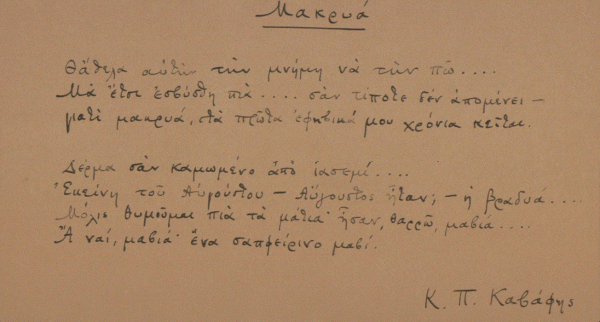 Μακρυά
Θἄθελα αὐτὴν τὴν μνήμη νὰ τὴν πῶ....
Μὰ ἔτσι ἐσβύσθη πιὰ.... σὰν τίποτε δὲν ἀπομένει —
γιατὶ μακρυά, στὰ πρῶτα ἐφηβικά μου χρόνια κεῖται.
Δέρμα σὰν καμωμένο ἀπὸ ἰασεμί....
Ἐκείνη τοῦ Αὐγούστου — Αὔγουστος ἦταν; — ἡ βραδυά....
Μόλις θυμοῦμαι πιὰ τὰ μάτια· ἦσαν, θαρρῶ, μαβιά....
Ἆ ναί, μαβιά· ἕνα σαπφείρινο μαβί.
Κ. Π. Καβάφης